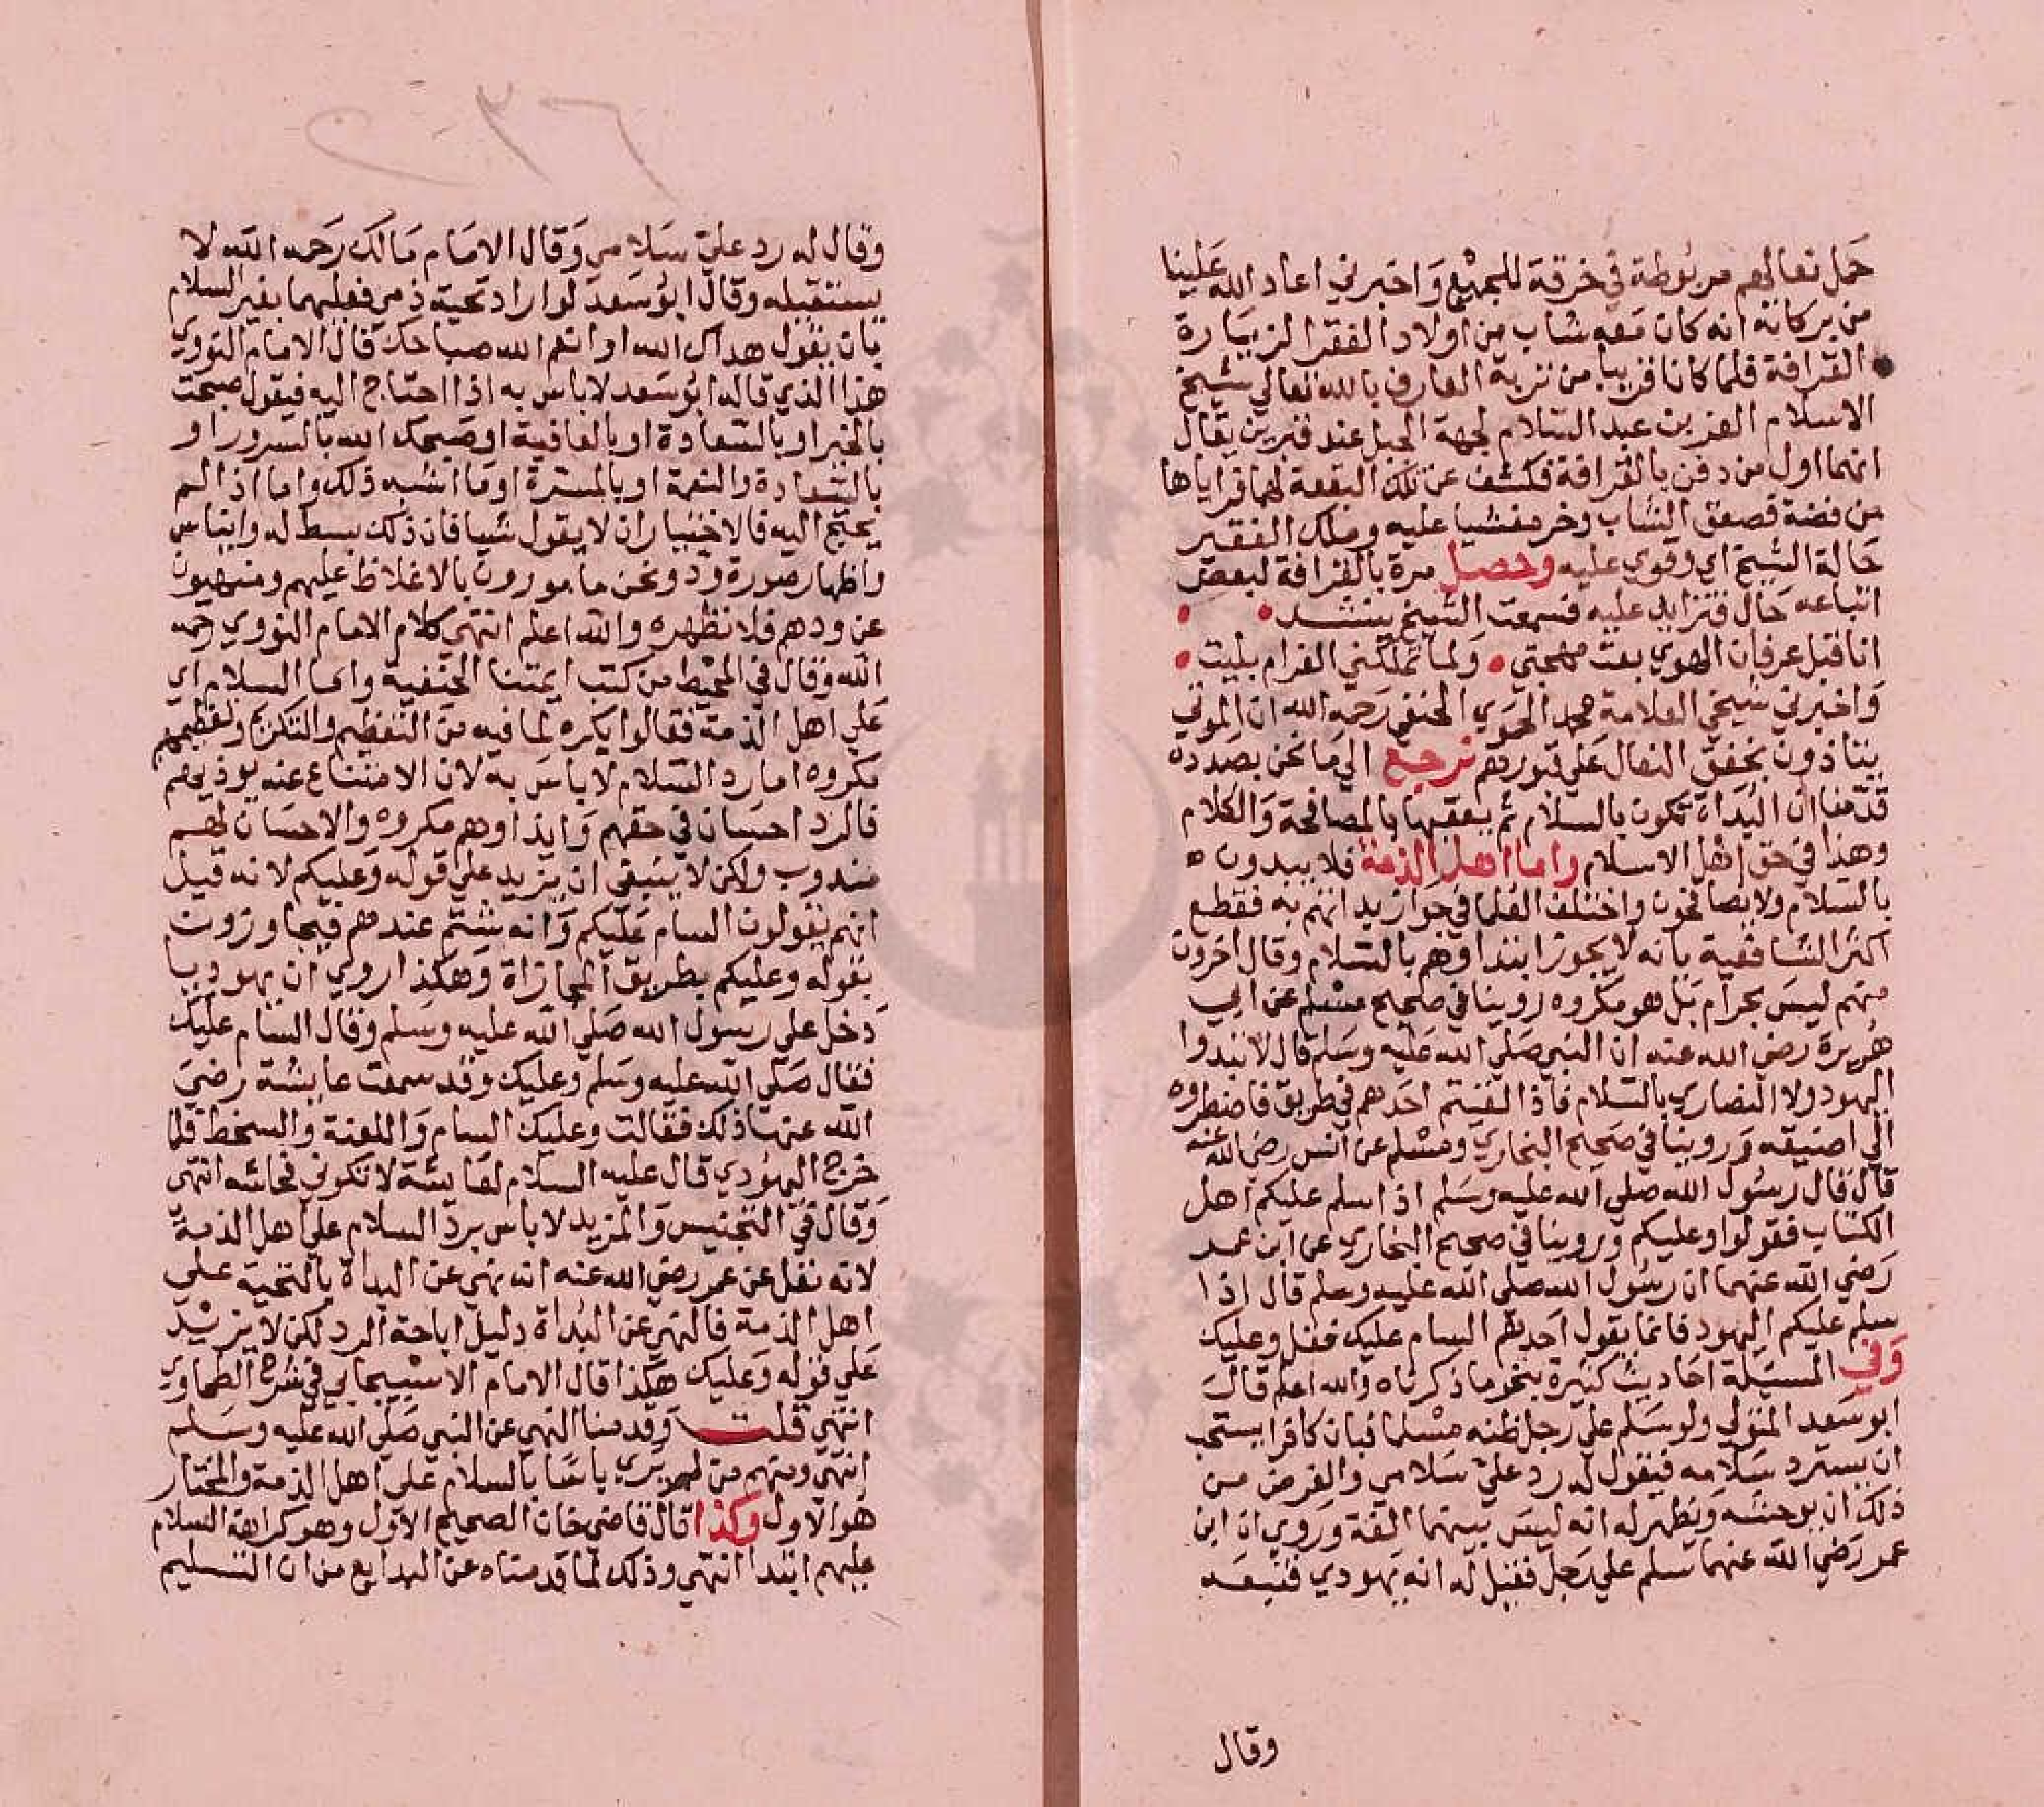 حمل نعالهم مربوطة في خرقة للجميع واخبرني اعاد الله علينا
من بركاته انه كان معه شاب من اولاد الفقرا لزيارة
القرافة فلما كانا قريبا من تربة العارف بالله تعالي شيخ
الاسلام العز بن عبد السلام لجهة الجبل عند قبرين يقال
انهما اول من دفن بالقرافة فكشف عن تلك البقعة لهما فراياها
من فضة فصعق الشاب وخر مغشيا عليه وملك الفقير
حالة الشيخ اي وقوي عليه وحصل مرة بالقرافة لبعض
اتباعه حال فتزايد عليه فسمعت الشيخ ينشد
انا قبل عرفان الهوي بعت مهجتي ولما تملكني الغرام بليت
واخبرني شيخي العلامة محمد الحموي الحنفي رحمه الله ان الموتي
يتاذون بخفق النعال علي قبورهم نرجع الي ما نحن بصدده
قدمنا ان البداة تكون بالسلام ثم يعقبها بالمصافحة والكلام
وهذا في حق اهل الاسلام واما اهل الذمة فلا يبدون ه
بالسلام ولا يصافحون واختلف العلما في جواز بدايتهم به فقطع
اكثر الشافعية بانه لا يجوز ابتداوهم بالسلام وقال اخرون
منهم ليس بحرام بل هو مكروه روينا في صحيح مسلم عن ابي
هريرة رضي الله عنه ان النبي صلي الله عليه وسلم قال لا تبدوا
اليهود ولا النصاري بالسلام فاذا لقيتم احدهم في طريق فاضطروه
الي اضيقه وروينا في صحيح البخاري ومسلم عن انس رضي الله عنه
قال قال رسول الله صلي الله عليه وسلم اذا سلم عليكم اهل
الكتاب فقولوا وعليكم وروينا في صحيح البخاري عن ابن عمر
رضي الله عنهما ان رسول الله صلي الله عليه وسلم قال اذا
سلم عليكم اليهود فانما يقول احدهم السام عليك فقل وعليك
وفي المسيلة احاديث كثيرة بنحو ما ذكرناه والله اعلم قال
ابو سعد المتولي ولو سلم علي رجل ظنه مسلما فبان كافرا يستحب
ان يسترد سلامه فيقول له رد علي سلامي والغرض من
ذلك ان يوحشه ويظهر له انه ليس بينهما الفة وروي ان ابن
عمر رضي الله عنهما سلم علي رجل فقيل له انه يهودي فتبعه
وقال
وقال له رد علي سلامي وقال الامام مالك رحمه الله لا
يستقيله وقال ابو سعد لو اراد تحية ذمي فعلها بغير السلام
بان يقول هداك الله او انعم الله صباحك قال الامام النووي
هذا الذي قاله ابو سعد لا باس به اذا احتاج اليه فيقول صبحت
بالخير او بالسعادة او بالعافية او صبحك الله بالسرور او
بالسعادة والنعمة او بالمسرة او ما اشبه ذلك واما اذا لم
يحتج اليه فالاختيار ان لا يقول شيا فان ذلك بسط له وايناس
واظهار صورة ود ونحن مامورون بالاغلاظ عليهم ومنهيون
عن ودهم فلا نظهره والله اعلم انتهي كلام الامام النووي رحمه
الله وقال في المحيط من كتب ايمتنا الحنفية واما السلام اي
علي اهل الذمة فقالوا يكره لما فيه من التعظيم والتكريم وتعظيمهم
مكروه اما رد السلام لا باس به لان الامتناع عنه يوذيهم
فالرد احسان في حقهم وايذاوهم مكروه والاحسان لهم
مندوب ولكن لا ينبغي ان يزيد علي قوله وعليكم لانه قيل
انهم يقولون السام عليكم وانه شتم عندهم فيجاوزون
بقوله وعليكم بطريق المجازاة وهكذا روي ان يهوديا
دخل علي رسول الله صلي الله عليه وسلم وقال السام عليك
فقال صلي الله عليه وسلم وعليك وقد سمعت عايشة رضي
الله عنها ذلك فقالت وعليك السام واللعنة والسخط فلما
خرج اليهودي قال عليه السلام لعايشة لا تكوني فحاشه انتهي
وقال في التجنيس والمزيد لا باس برد السلام علي اهل الذمة
لانه نقل عن عمر رضي الله عنه انه نهي عن البداة بالتحية علي
اهل الذمة فالنهي عن البداة دليل اباحة الرد لكن لا يزيد
علي قوله وعليك هكذا قال الامام الاسبيجابي في شرح الطحاوي
انتهي قلت وقدمنا النهي عن النبي صلي الله عليه وسلم
انتهي ومنهم من لم ير باسا بالسلام علي اهل الذمة والمختار
هو الاول وكذا قال قاضي خان الصحيح الاول وهو كراهة السلام
عليهم ابتدا انتهي وذلك لما قدمناه عن البدايع من ان التسليم